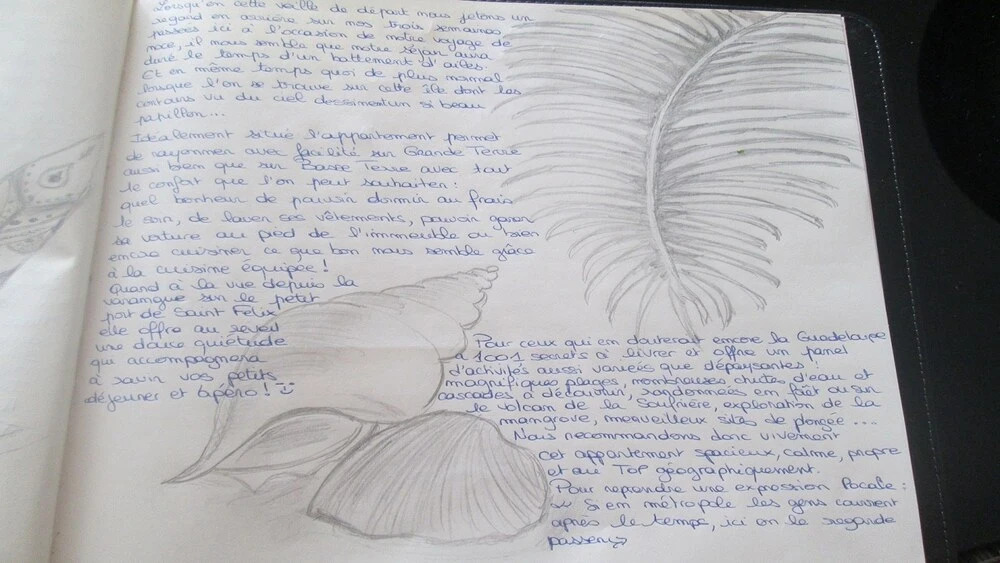 Lorsqu'en cette veille de départ nous jetons un
regard en arrière sur nos trois semaines
passées ici à l'occasion de notre voyage de
noce, il nous semble que notre séjour aura
duré le temps d'un battement d'ailes.
Et en même temps quoi de plus normal
lorsque l'on se trouve sur cette île dont les
contours vu du ciel dessinent un si beau
papillon...
Idéalement situé l'appartement permet
de rayonner avec facilité sur Grande Terre
aussi bien que sur Basse Terre avec tout
le confort que l'on peut souhaiter :
quel bonheur de pouvoir dormir au frais
le soir, de laver ses vêtements, pouvoir garer
sa voiture au pied de l'immeuble ou bien
encore cuisiner ce que bon nous semble grâce
à la cuisine équipée !
Quand à la vue depuis la
varangue sur le petit
port de Saint Felix
elle offre au reveil
une douce quiétude
qui accompagnera
à ravir vos petits
déjeuner et apéro !
Pour ceux qui en douterait encore la Guadeloupe
a 1001 secrets à livrer et offre un panel
d'activités aussi variées que dépaysantes :
magnifiques plages, nombreuses chutes d'eau et
cascades à découvrir, randonnées en forêt ou sur
le volcan de la Soufrière, exploration de la
mangrove, merveilleux sites de plongée ....
Nous recommandons donc vivement
cet appartement spacieux, calme, propre
et au TOP géographiquement.
Pour reprendre une expression locale :
" Si en métropole les gens courent
après le temps, ici on le regarde
passer "